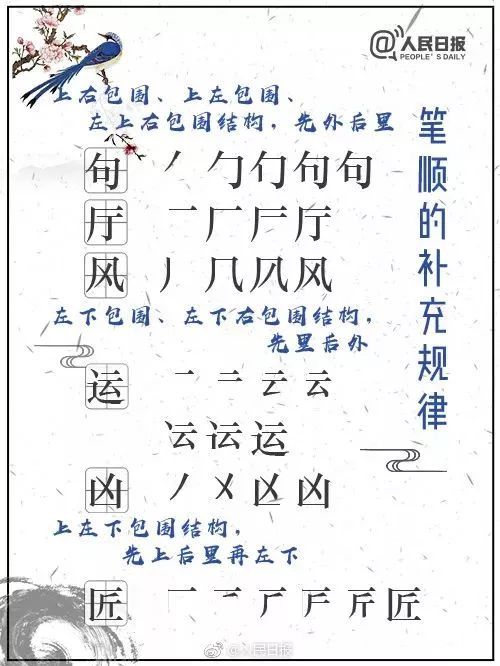 @人民日报
PEOPLE'S DAILY
笔顺的补充规律
上右包围、上左包围、
左上右包围结构，先外后里
句 丿 勹 勹 句 句
厅 一 厂 厂 厅
风 丿 几 凡 风
左下包围、左下右包围结构，
先里后外
运 一 二 云 云
云 运 运
凶 丿 乂 凶 凶
上左下包围结构，
先上后里再左下
匠 一 二 斤 斤 斤 匠
@人民日报